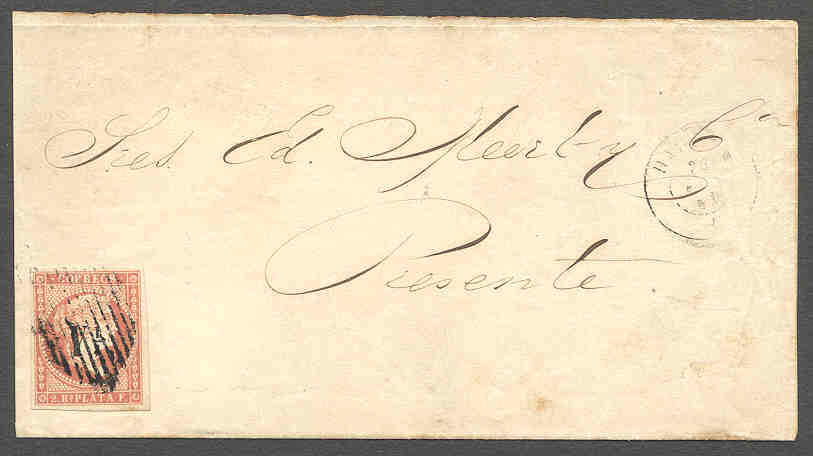 Sres. Ed. Meert y Cª
Presente
CORREOS
Y ¼
2 Rl PLATA F.